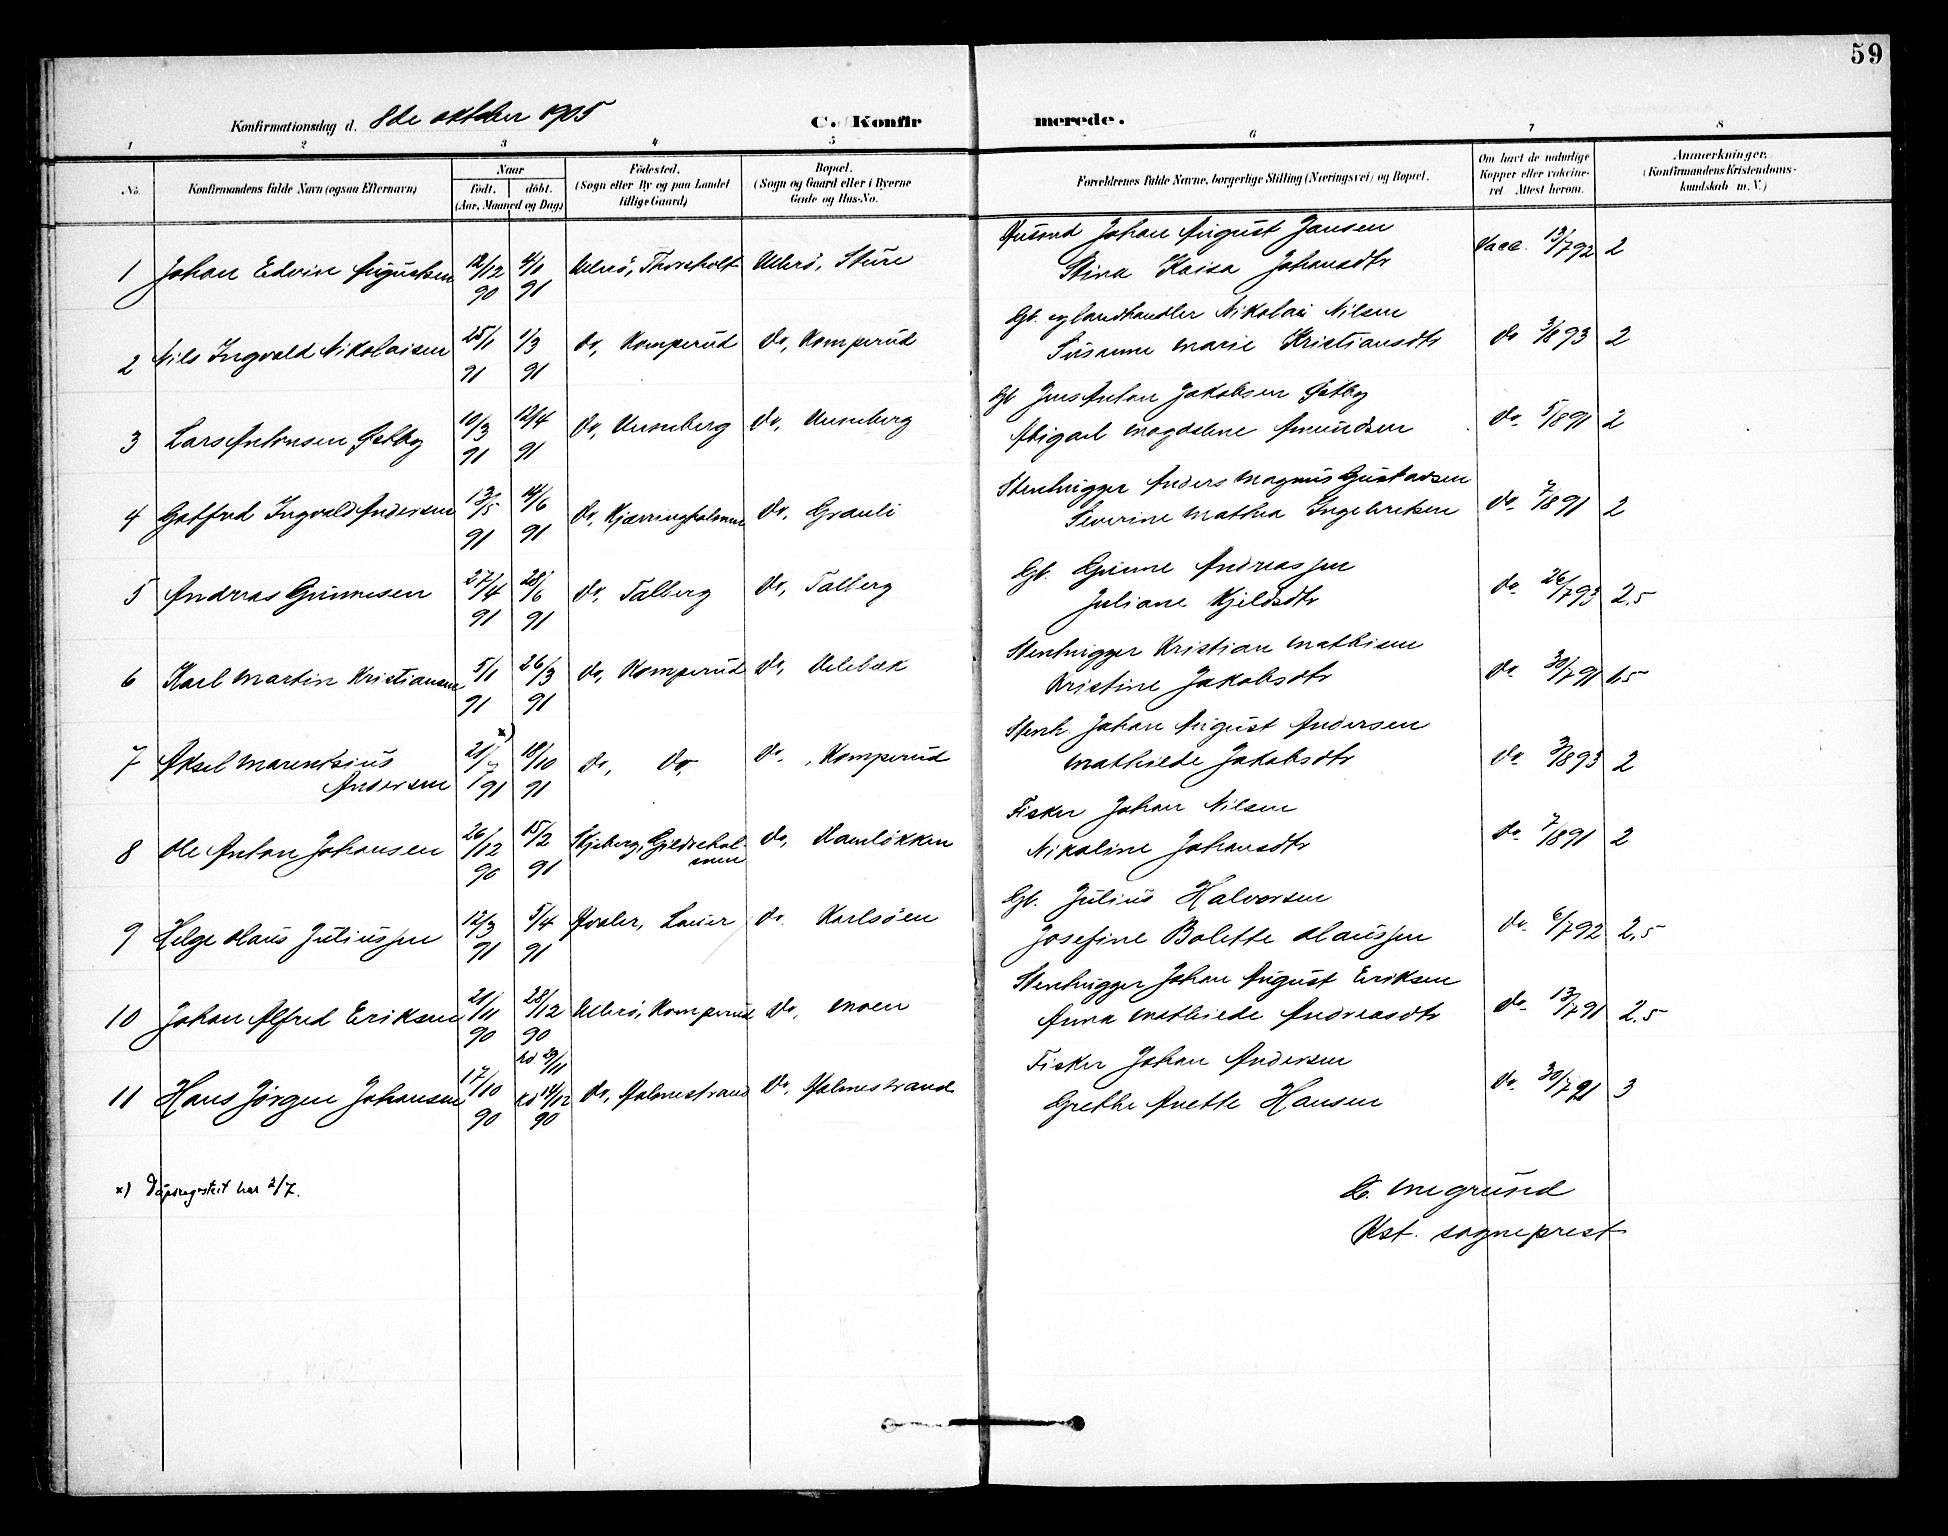 59
Konfirmationsdag d. 8de oktober 1905 C. Konfirmerede.
1 2 3 4 5 6 7 8
No. Konfirmandens fulde Navn (ogsaa Efternavn) Naar født. døbt. (Aar, Maaned og Dag) Födested. (Sogn eller By og paa Landet tillige Gaard) Bopæl. (Sogn og Gaard eller i Byerne Gade og Hus-No. Forældrenes fulde Navne, borgerlige Stilling (Næringsvei) og Bopæl. Om havt de naturlige Kopper eller vakcineret Attest herom. Anmærkninger. (Konfirmandens Kristendomskundskab m. V.)
1 Johan Edvin Augustsen 12/12 90 4/1 91 Thorsholt Johan August Jansen
Stina Kaisa Johansdtr Vacc. 13/7 92 2
2 Nils Ingvald Nikolaisen 25/1 91 1/3 91 do, Komperud do, Komperud Gbr. og landhandler Nikolai Nilsen
Susanne Marie Kristiansdtr do 3/8 93 2
3 Lars Antonsen Østby 10/3 91 12/4 91 do, do, Gbr Jens Anton Jakobsen Østby
Abigael Magdalene Amundsen do. 5/8 91 2
4 Gotfred Ingvald Andersen 13/5 91 14/6 91 do, Kjærringholmen do, Grauli Stenhugger Anders Magnus Gustavsen
Severine Mathea Ingebretsen do. 7/8 91 2
5 Andreas Gunnesen 27/4 91 28/6 91 do, Talberg do, Talberg Gbr. Gunne Andreassen
Juliane Kjeldsdtr do. 26/7 93 2.5
6 Karl Martin Kristiansen 5/1 91 26/3 91 do, Komperud do, Stenhugger Kristian Mathisen
Kristine Jakobsdtr do. 30/7 91 1,5
7 Aksel Marentsius Andersen 21/7 x) 91 18/10 91 do, do, do., Komperud Stenh. Johan August Andersen
Mathilde Jakobsdtr do. 3/8 93 2
8 Ole Anton Johansen 26/12 90 15/2 91 Skjeberg, Gjldreholmen do, Hamløkken Fisker Johan Nilsen
Nikoline Johansdtr do. 7/8 91 2
9 Helge Olaus Juliussen 12/3 91 5/4 91 Hvaler, Lauer do. Karlsöen Gbr. Julius Halvorsen
Josefine Bolette Olaussen do. 6/7 92 2,5
10 Johan Alfred Eriksen 21/11 90 28/12 90 Ullerö, Komperud do, Moen Stenhugger Johan August Eriksen
Anna Mathilde Andreasdtr do. 13/7 91 2.5
11 Hans Jørgen Johansen 17/10 90 hd 29/11 kd 14/12 90 do, Papperestrand do, Fisker Johan Andersen
Grethe Anette Hansen do. 30/7 91 3
x) Dåpsregisteret har 2/7.
Kst. sogneprest